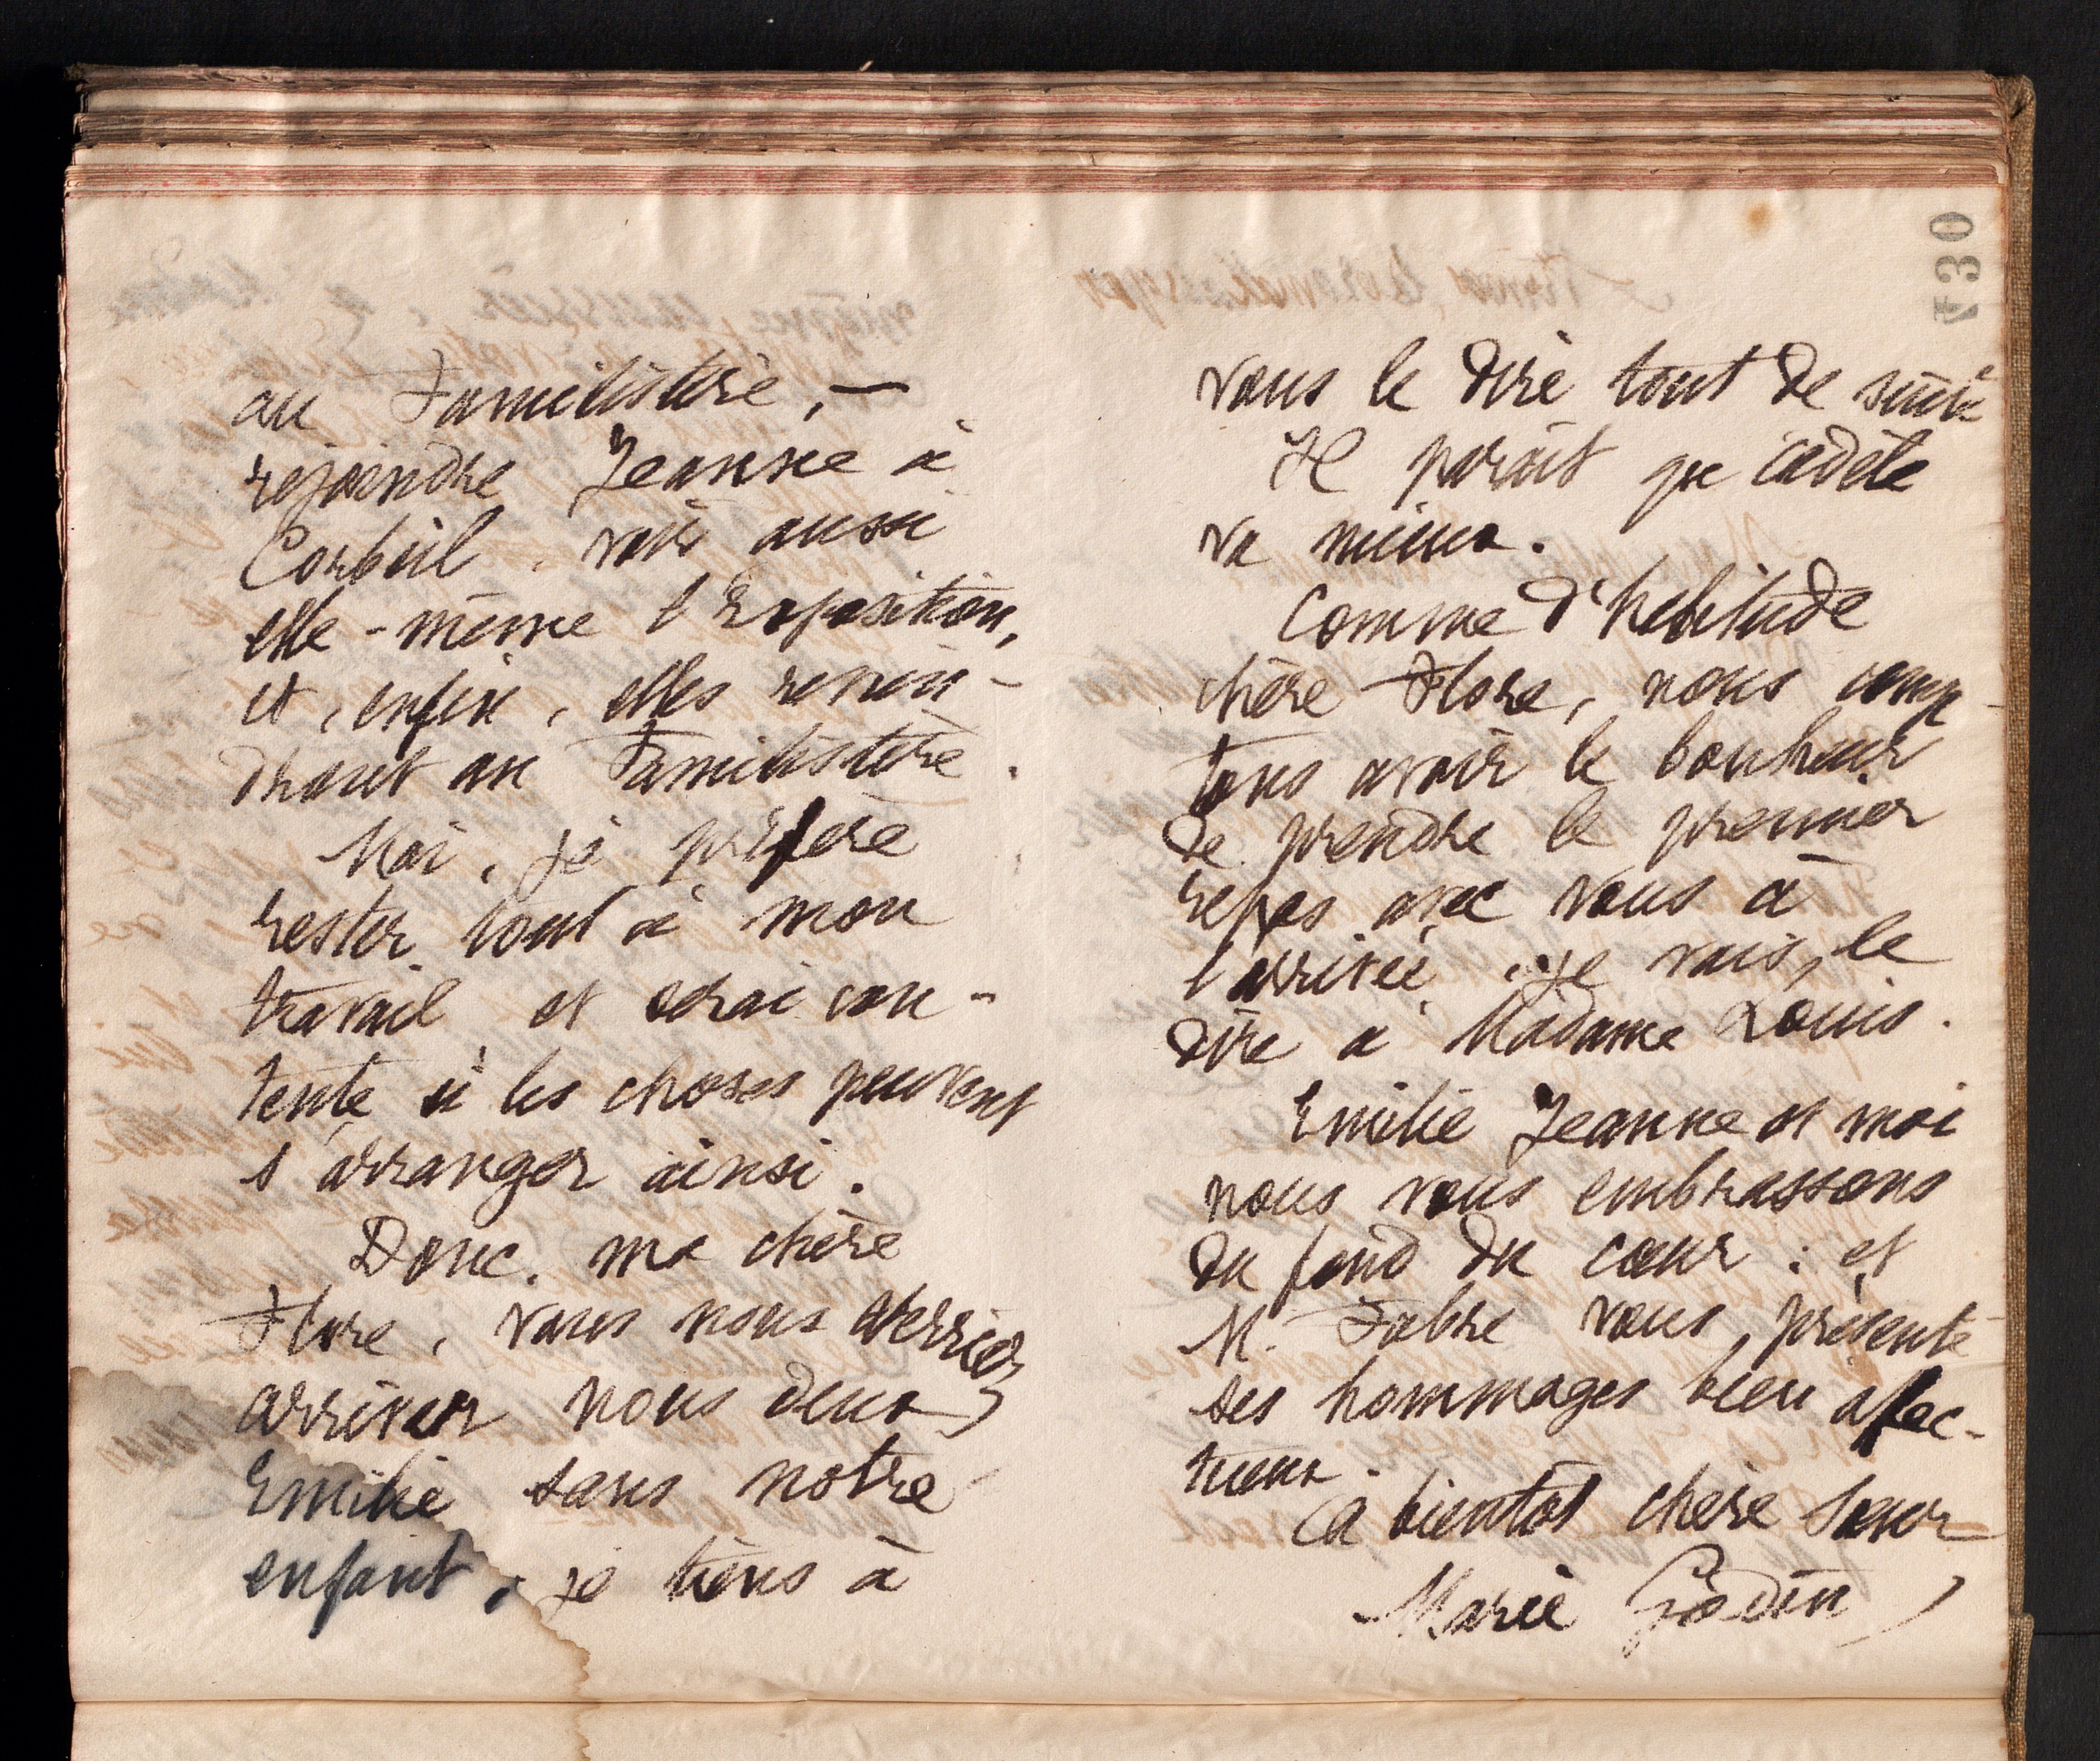 au Familistère, —
rejoindre Jeanne à
Corbeil, voir aussi
elle-même l'Exposition,
et, enfin, elles revien-
dront au Familistère.
Moi, je préfère
rester tout à mon
travail et serai con-
tente si les choses peuvent
s'arranger ainsi.
Donc, ma chère
Flore, vous nous verriez
arriver nous deux
Emilie sans notre
enfant, je tiens à
730
vous le dire tout de suite
Il paraît que Cadète
va mieux.
Comme d'habitude
chère Flore, nous comp-
tons avoir le bonheur
de prendre le premier
repas avec vous à
l'arrivée. Je vais le
dire à Madame Louis.
Emilie Jeanne et moi
nous vous embrassons
du fond du cœur ; et
M. Fabre vous présente
ses hommages bien affec-
tueux.
A bientôt chère Sœur
Marie Godin